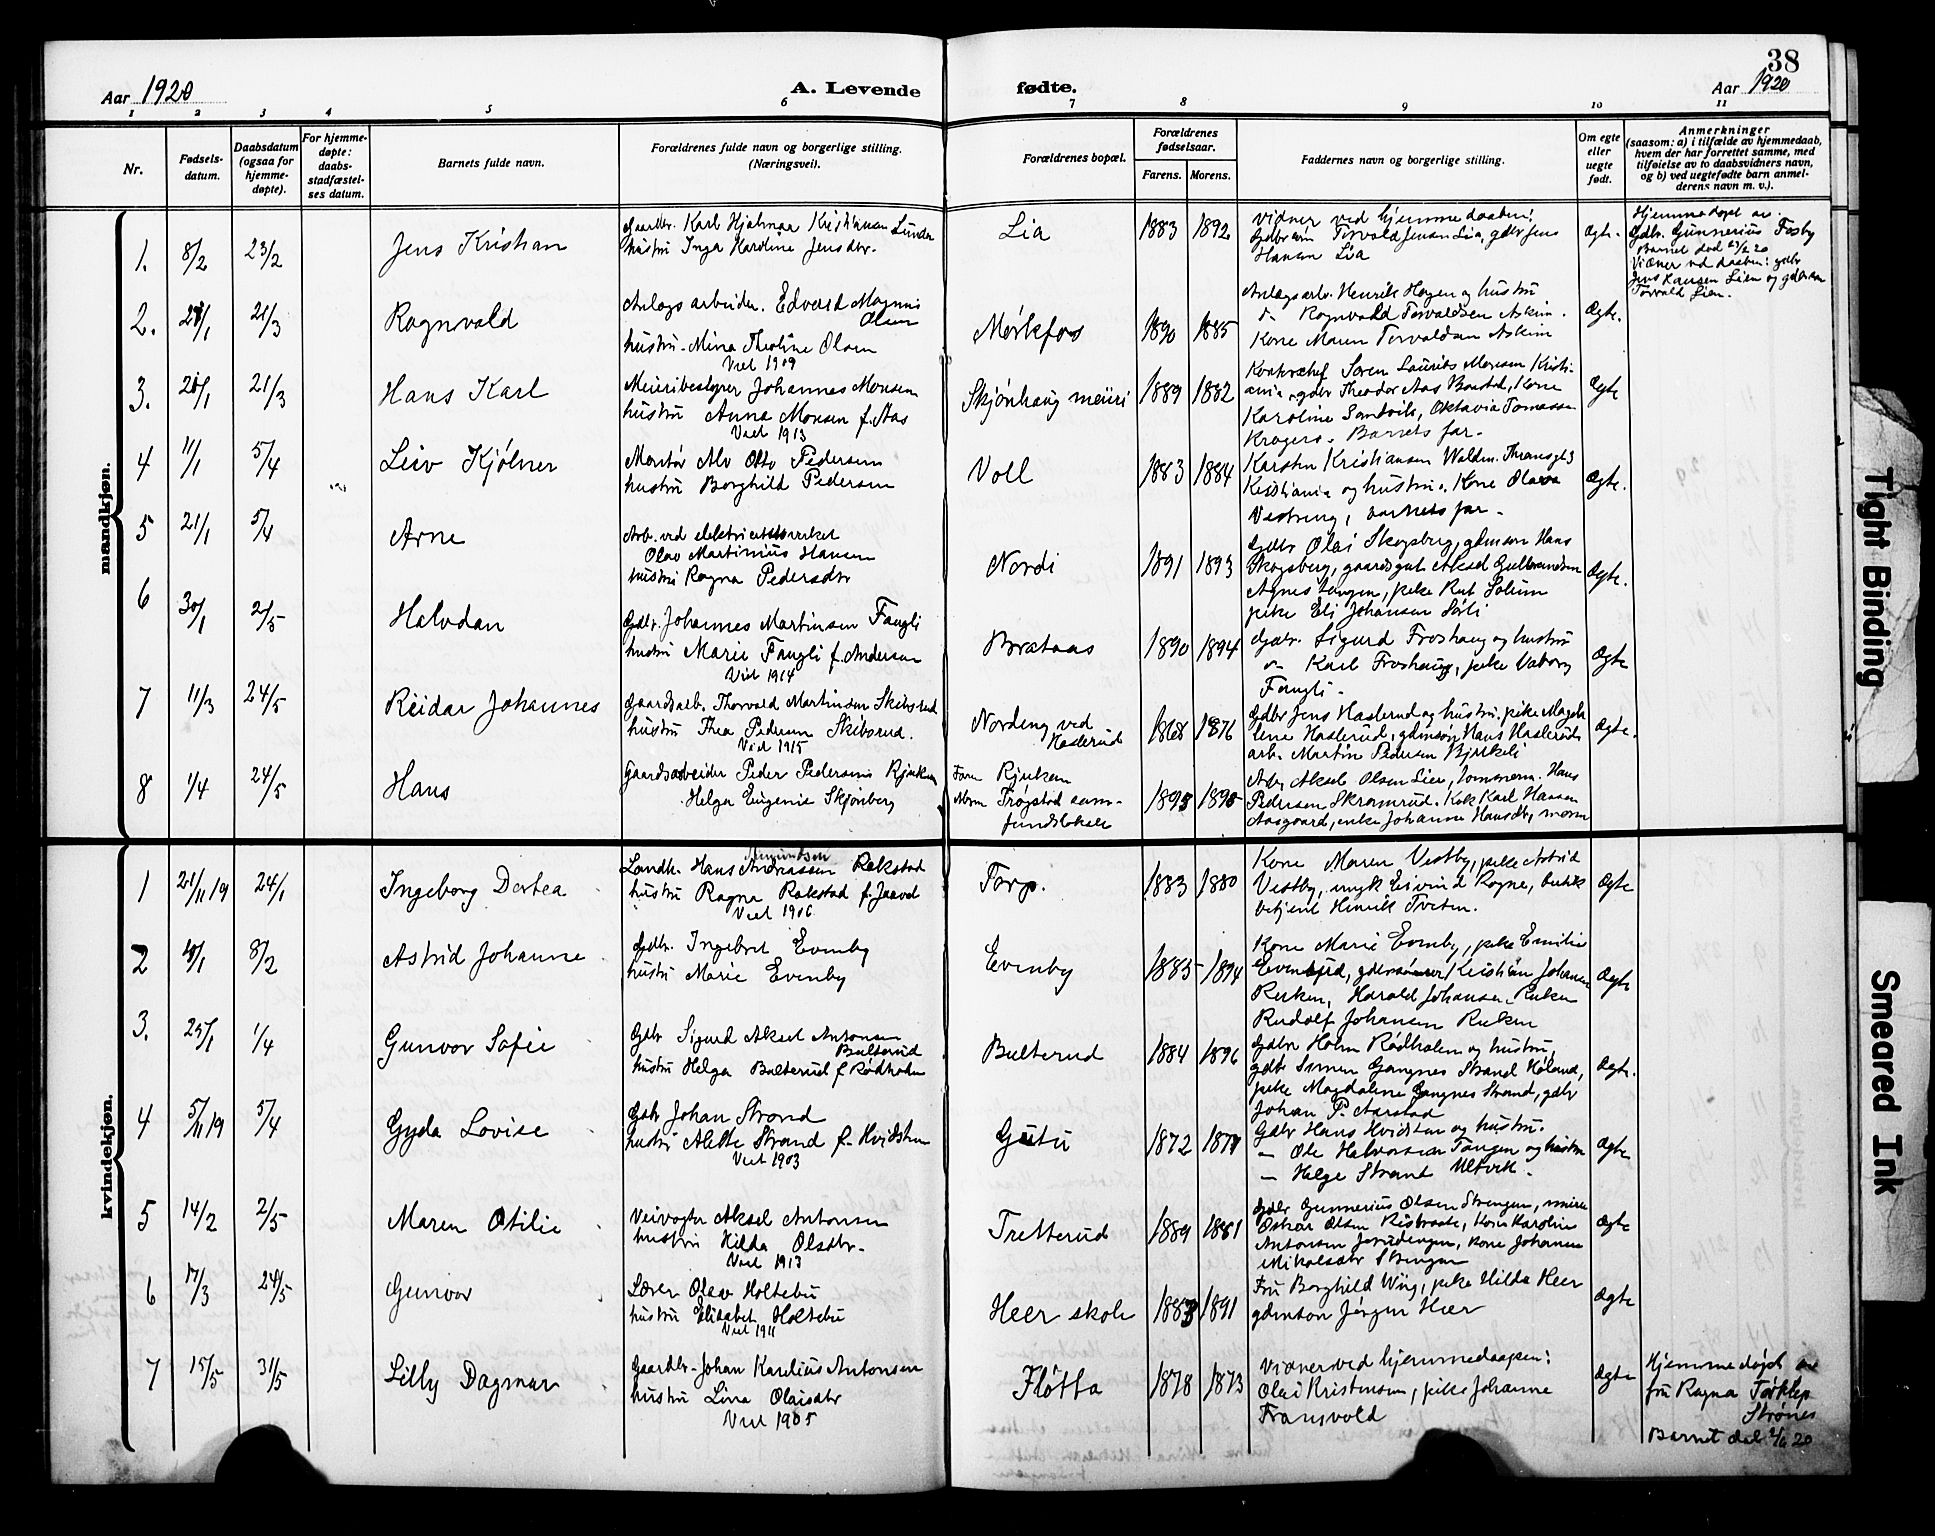 38
Aar 1920
A. Levende
fødte.
Aar 1920
1 2 3 4 5 6 7 8 9 10 11
Nr.
Fødsels-
datum.
Daabsdatum
(ogsaa for
hjemme-
døpte).
For hjemme-
døpte:
daabs-
stadfæstel-
ses datum.
Barnets fulde navn.
Forældrenes fulde navn og borgerlige stilling.
(Næringsvei).
Forældrenes bopæl.
Forældrenes
fødselsaar.
Farens. Morens.
Faddernes navn og borgerlige stilling.
Om egte
eller
uegte
født.
Anmerkninger
(saasom: a) i tilfælde av hjemmedaab,
hvem der har forrettet samme, med
tilføielse av to daabsvidners navn,
og b) ved uegtefødte barn anmel-
derens navn m. v.).
mandkjøn.
1. 8/2 23/2 Jens Kristian
Karl Hjalmar Kristiansen Lunder
hustru Inga Hardine Jensdtr.
Lia 1883 1892
Vidner ved hjemmedaaben:
Torvald Jensen Lia, gdbr Jens
Hansen Lia
Ægte.
Hjemmedøpt av
Gdbr. Gunnerius Fosby
Barnet død 20
Vidner ved daaben: gdbr
Jens Hansen Lien og
Torvald Lien.
2. 21/3 Ragnvald
Anlegsarbeider. Edvard Magnus
Olsen
hustru Mina Theoline Olsen
Viet 1909
Mørkfos 1890 1885
Anlegsarb. Henrik Hagen og hustru
Ragnvald Torvaldsen Askim.
Kone Maren Torvaldsen Askim
Ægte.
3. 21/3 Hans Karl
Meieribestyrer Johannes Monsen
hustru Anna Monsen f. Aas
Viet 1913
Skjønhaug meieri 1889 1882
Søren Laurits Monsen Kristi-
ania, gdbr Theodor Aas Baastad, Kone
Karoline Sandvik, Oktavia Tomassen
Kragerø. Barnets far.
Ægte
4 11/1 5/4 Leiv Kjølner
Montør Alv Otto Pedersen
hustru Borghild Pedersen
Voll 1883 1884
Karsten Kristiansen
Kristiania og hustru. Kone Olava
barnets far.
Ægte.
5 21/1 5/4 Arne
Arb. ved elektricitetsverket
Olav Martinius Hansen
hustru Ragna Pedersdtr
Nordi 1891 1893
Gdbr Olai Skogsberg, gdmsøn Hans
Skogsberg, gaardsgut Aksel Gulbrandsen
Agnes Tangen, pike Rut Solum
pike Eli Johansen Sørli
Ægte.
6 30/1 2/5 Halvdan
Gdbr. Johannes Martinsen Fangli
hustru Marie Fangli f. Andersen
Viet 1914
Bråtaas 1890 1894
Gdbr. Sigurd Froshaug og hustru
Karl Froshaug, pike Valborg
Fangli.
Ægte
7 11/3 24/5 Reidar Johannes
Gaardsarb. Thorvald Martinsen Skibsrud
hustru Thea Pedersen Skibsrud.
Viet 1915
Nordeng ved
Haslerud
1868 1876
Gdbr Jens Haslerud og hustru, pike Magda-
lene Haslerud, gdmsøn Hans Haslerud
arb. Martin Pedersen Bjerkeli
Ægte.
8 1/4 24/5 Hans
Gaardsarbeider Peder Pedersen Rjukan
Helga Eugenie Skjønberg
Faren Rjukan
Moren Trøgstad sam-
fundslokale
1895
Arb. Aksel Olsen Lier, tømmerm. Hans
Pedersen Skramrud. Karl Hansen
Aasgaard, enke Johanne Hansdtr, moren
kvindekjøn.
1 21/11 19 24/1 Ingeborg Dortea
Landh. Hans Andreassen Rakstad
Amundsen
hustru Ragna Rakstad f. Jaavol
Viet 1906
Torp. 1883 1880
Kone Maren Vestby, pike Astrid
Vestby, ungk Eivind Ragne, butik
betjent Henrik Tveten.
Ægte
2 8/2 Astrid Johanne
Gdbr. Ingebret Evenby
hustru Marie Evenby
Evenby 1885 1894
Kone Marie Evenby, pike Emilie
Evenby, Kristian Johansen
Ruken, Harald Johansen Ruken
Rudolf Johansen Ruken
Ægte
3. 25/1 1/4 Gunvor Sofie
Gdbr Sigurd Aksel Antonsen
Bulterud
hustru Helga Bulterud f. Rødholm
Bulterud 1884 1896
Gdbr Holm Rødholen og hustru,
gdbr Simen Gangnes Strand Høland,
pike Magdalene Gangnes Strand, gdbr
Johan P. Aarstad
Ægte.
4 5/11 19 5/4 Gyda Lovise
Gdbr Johan Strand
hustru Alette Strand f. Hvidsten
Viet 1903
Gutu 1872
Gdbr Hans Hvidsten og hustru.
— Ole Halvorsen Tangen og hustru
— Helge Strand Ultvik.
Ægte
5 14/2 2/5 Maren Otilie
Veivogter Aksel Antonsen
hustru Hilda Olsdtr.
Viet 1913
Tretterud 1889 1881
Gdbr Gunnerius Olsen Strengen, murer
Oskar Olsen Risbraate, Kone Karoline
Antonsen, kone Johanne
Mikalsdtr Strengen
Ægte
6 17/3 24/5 Gunvor
Lærer Olav Holtebu
hustru Elisabet Holtebu
Viet 1911
Heer skole 1883 1891
Fru Borghild Wiig, pike Hilda Heer
gdmson Jørgen Heer
Ægte
7 15/5 31/5 Lilly Dagmar
Gaardbr. Johan Karelius Antonsen
hustru Lina Olaisdtr
Viet 1905
Fløtta 1878 1873
Vidner ved hjemmedaapen:
Olai Kristensen, pike Johanne
Fransvold
Ægte
Hjemmedøpt av
fru Ragna Torklep
Strønes
Barnet død 2/6 20
Tight Binding
Smeared Ink